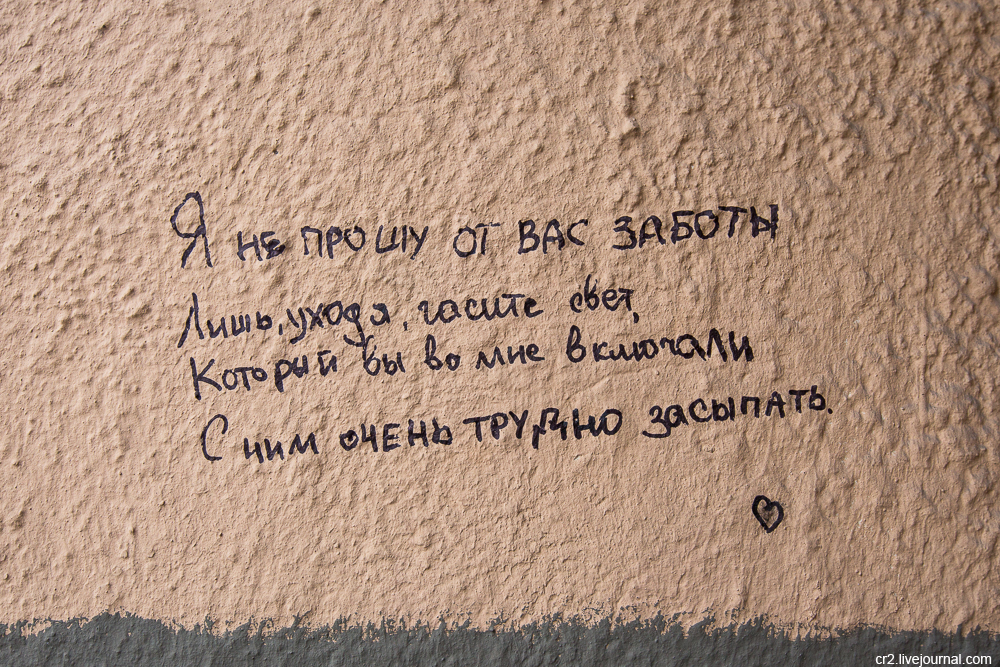 Я НЕ ПРОШУ ОТ ВАС ЗАБОТЫ
Лишь, уходя, гасите свет,
Который вы во мне включали
С ним ОЧЕНЬ ТРУДНО ЗАСЫПАТЬ.
cr2.livejournal.com